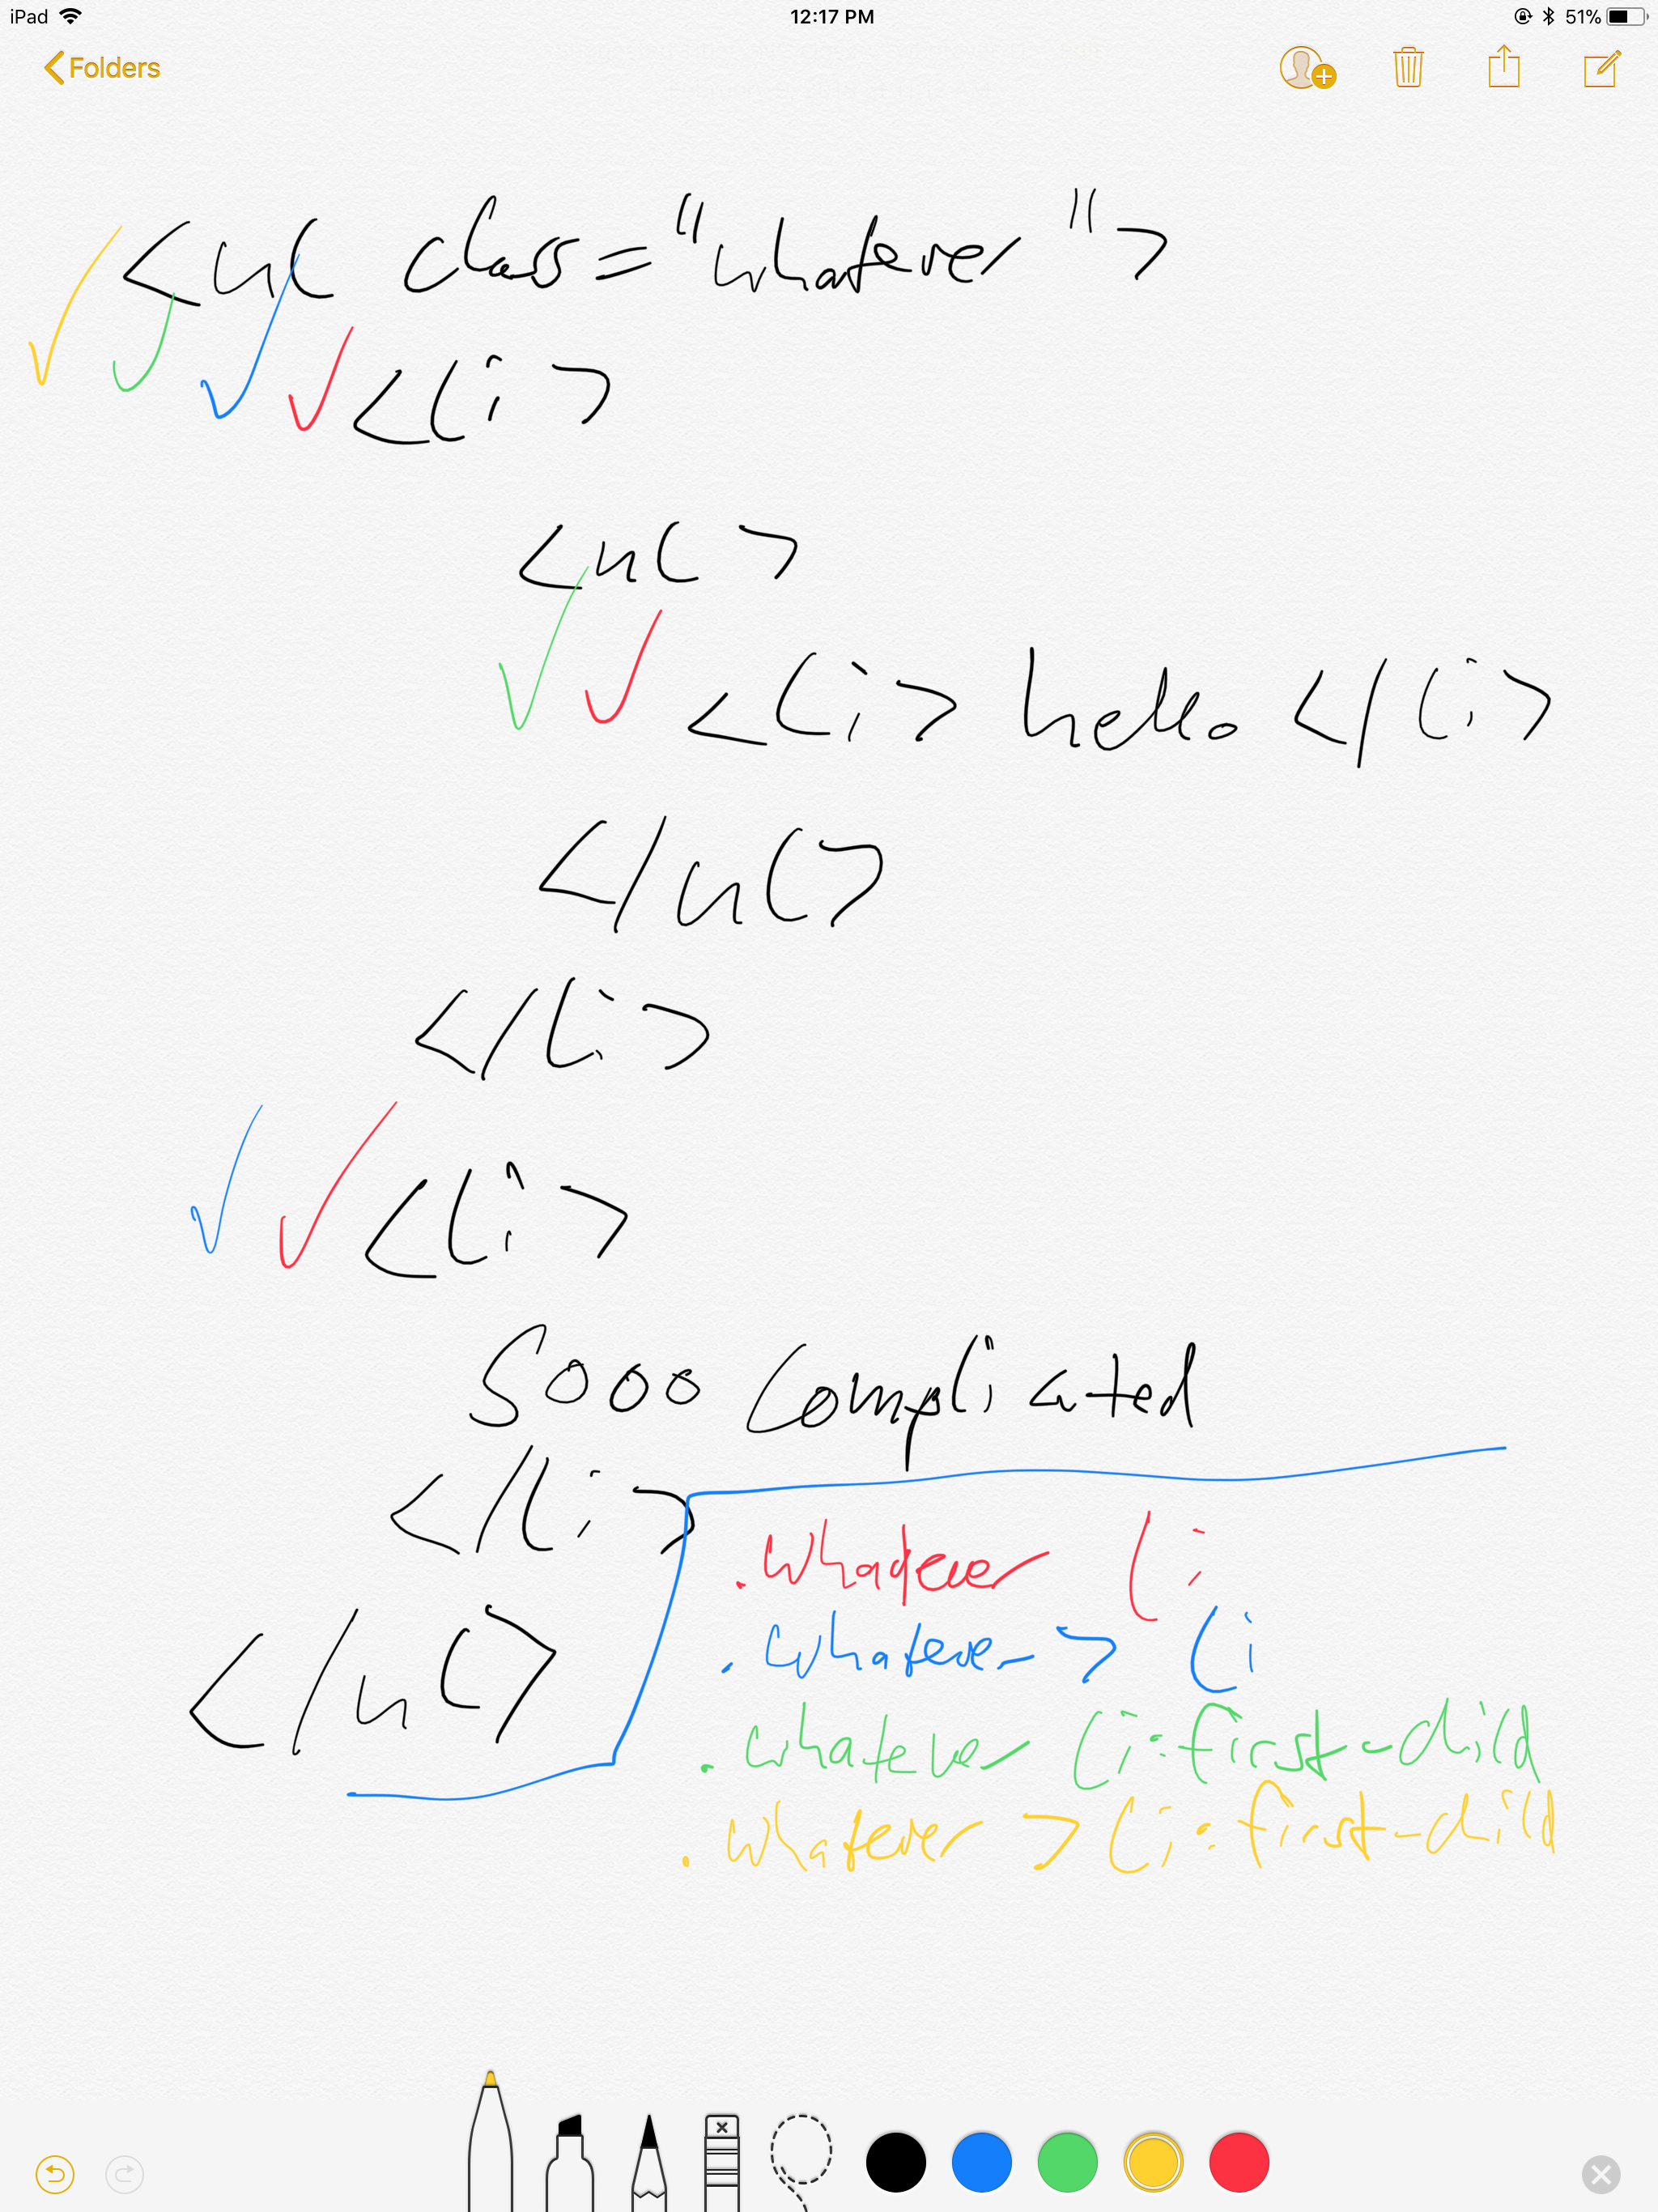 iPad 12:17 PM 51%
Folders
<ul class="whatever">
<li>
<ul>
<li> hello </li>
</ul>
</li>
<li>
Sooo complicated
</li>
</ul>
.whatever li
.whatever > li
.whatever li:first-child
.whatever > li:first-child